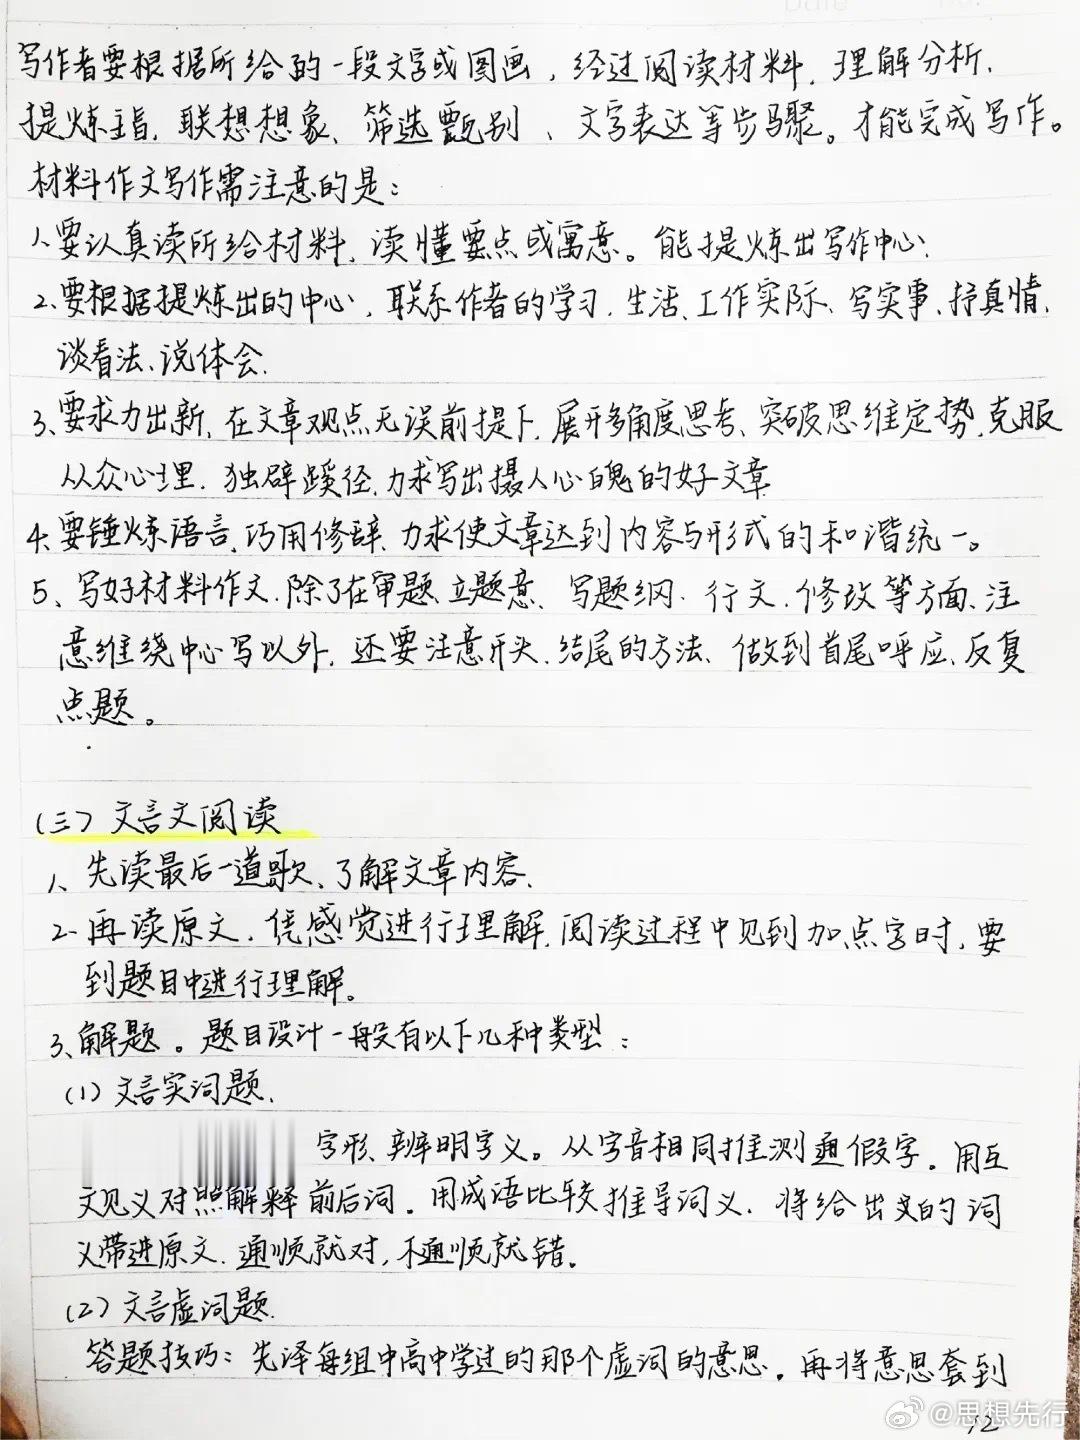 写作者要根据所给的一段文字或图画，经过阅读材料、理解分析、
提炼主旨、联想想象、筛选甄别、文字表达等步骤。才能完成写作。
材料作文写作需注意的是：
1、要认真读所给材料，读懂要点或寓意。能提炼出写作中心；
2、要根据提炼出的中心，联系作者的学习、生活、工作实际、写实事、抒真情、
谈看法、说体会.
3、要求力出新，在文章观点无误前提下，展开多角度思考、突破思维定势，克服
从众心理，独辟蹊径，力求写出摄人心魄的好文章
4、要锤炼语言，巧用修辞，力求使文章达到内容与形式的和谐统一。
5、写好材料作文，除了在审题、立题意、写题纲、行文、修改等方面、注
意维绕中心写以外，还要注意开头、结尾的方法、做到首尾呼应、反复
点题。
(三) 文言文阅读
1、先读最后一道歌、了解文章内容.
2、再读原文，凭感觉进行理解，阅读过程中见到加点字时，要
到题目中进行理解。
3、解题。题目设计一般有以下几种类型：
(1) 文言实词题.
字形、辨明字义。从字音相同推测通假字。用互
文见义对照解释前后词。用成语比较推导词义，将给出义的词
义带进原文，通顺就对，不通顺就错。
(2) 文言虚词题.
答题技巧：先译每组中高中学过的那个虚词的意思。再将意思套到
12
@思想先行